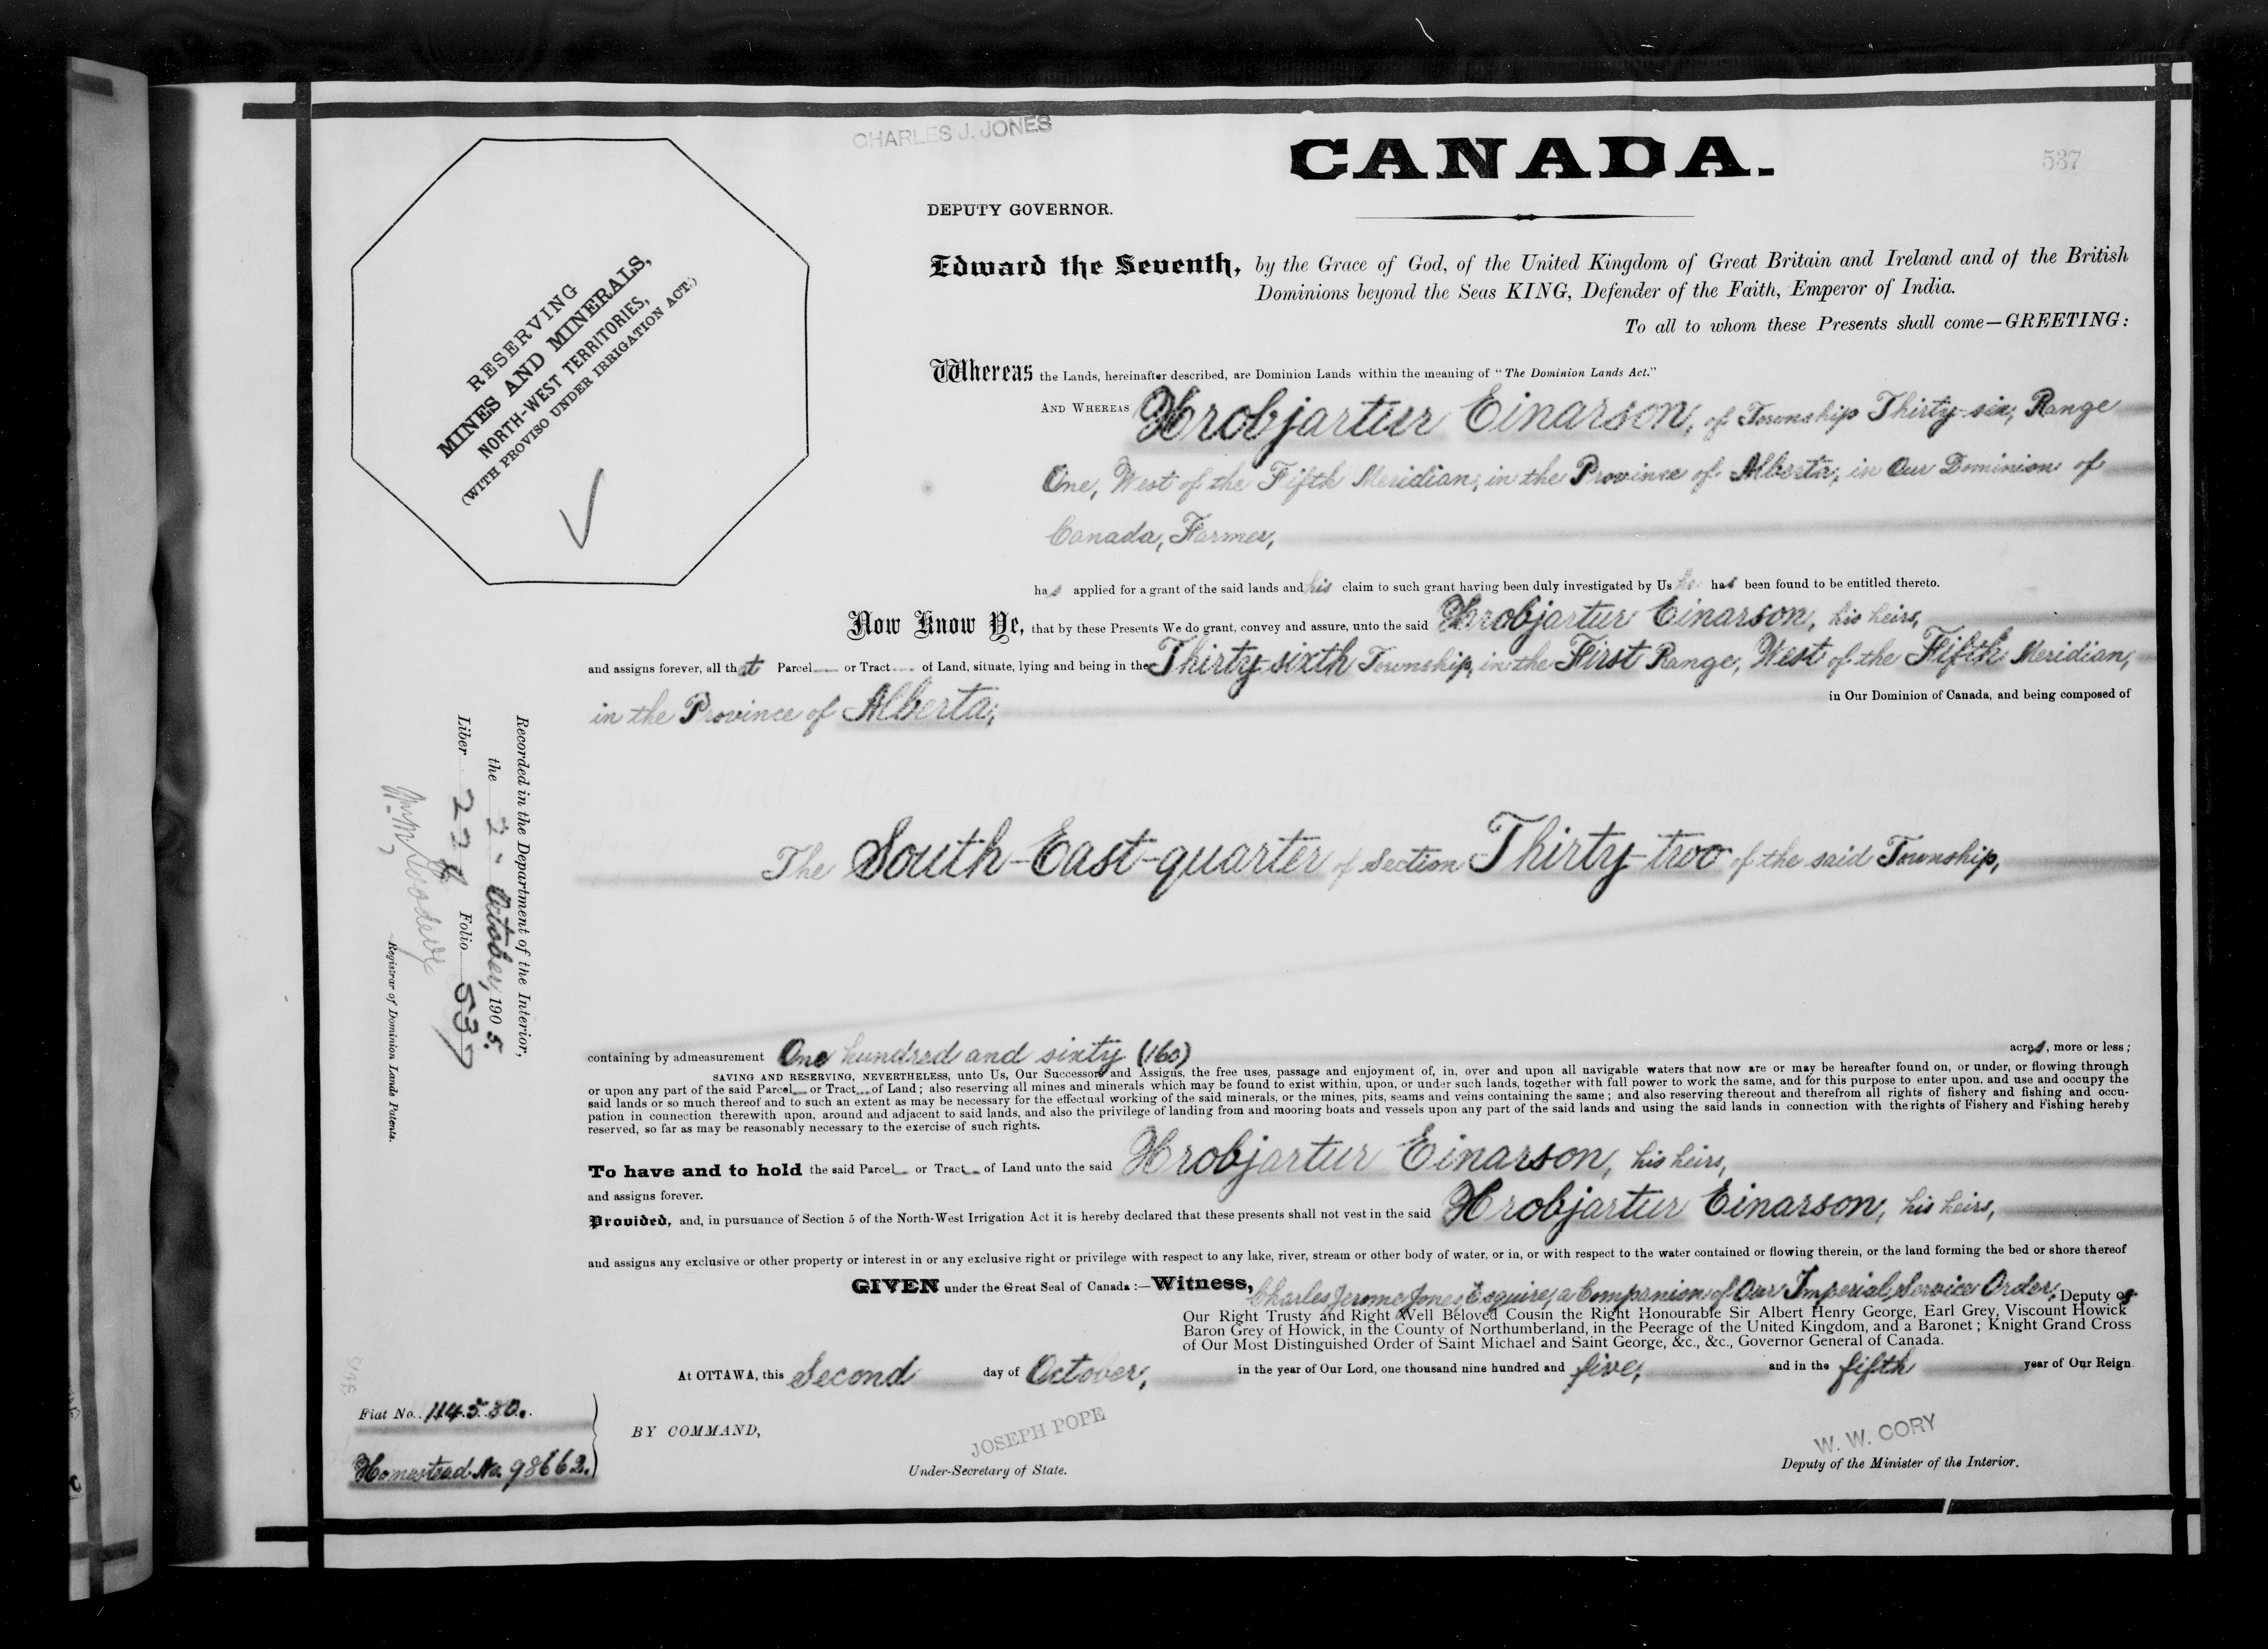 CHARLES J. JONES
CANADA.
537
DEPUTY GOVERNOR.
RESERVING
MINES AND MINERALS,
NORTH-WEST TERRITORIES,
(WITH PROVISO UNDER IRRIGATION ACT.)
Edward the Seventh, by the Grace of God, of the United Kingdom of Great Britain and Ireland and of the British
Dominions beyond the Seas KING, Defender of the Faith, Emperor of India.
To all to whom these Presents shall come—GREETING:
Whereas the Lands, hereinafter described, are Dominion Lands within the meaning of "The Dominion Lands Act."
AND WHEREAS Hrobjartur Einarson, of Township Thirty-six, Range
One, West of the Fifth Meridian, in the Province of Alberta, in Our Dominion of
Canada, Farmer,
has applied for a grant of the said lands and his claim to such grant having been duly investigated by Us he has been found to be entitled thereto.
Now Know Ye, that by these Presents We do grant, convey and assure, unto the said Hrobjartur Einarson, his heirs,
and assigns forever, all that Parcel or Tract of Land, situate, lying and being in the Thirty-sixth Township, in the First Range, West of the Fifth Meridian,
in the Province of Alberta, in Our Dominion of Canada, and being composed of
The South-East-quarter of Section Thirty-two of the said Township,
Recorded in the Department of the Interior,
the 2 October, 1905.
Liber Folio 537
Registrar of Dominion Lands Patents.
containing by admeasurement One hundred and sixty (160) acres, more or less;
SAVING AND RESERVING, NEVERTHELESS, unto Us, Our Successors and Assigns, the free uses, passage and enjoyment of, in, over and upon all navigable waters that now are or may be hereafter found on, or under, or flowing through
or upon any part of the said Parcel or Tract of Land; also reserving all mines and minerals which may be found to exist within, upon, or under such lands, together with full power to work the same, and for this purpose to enter upon, and use and occupy the
said lands or so much thereof and to such an extent as may be necessary for the effectual working of the said minerals, or the mines, pits, seams and veins containing the same; and also reserving thereout and therefrom all rights of fishery and fishing and occu-
pation in connection therewith upon, around and adjacent to said lands, and also the privilege of landing from and mooring boats and vessels upon any part of the said lands and using the said lands in connection with the rights of Fishery and Fishing hereby
reserved, so far as may be reasonably necessary to the exercise of such rights.
To have and to hold the said Parcel or Tract of Land unto the said Hrobjartur Einarson, his heirs,
and assigns forever.
Provided, and, in pursuance of Section 5 of the North-West Irrigation Act it is hereby declared that these presents shall not vest in the said Hrobjartur Einarson, his heirs,
and assigns any exclusive or other property or interest in or any exclusive right or privilege with respect to any lake, river, stream or other body of water, or in, or with respect to the water contained or flowing therein, or the land forming the bed or shore thereof
GIVEN under the Great Seal of Canada:—Witness, Charles Jerome Jones, Esquire, a Companion of Our Imperial Service Order, Deputy of
Our Right Trusty and Right Well Beloved Cousin the Right Honourable Sir Albert Henry George, Earl Grey, Viscount Howick
Baron Grey of Howick, in the County of Northumberland, in the Peerage of the United Kingdom, and a Baronet; Knight Grand Cross
of Our Most Distinguished Order of Saint Michael and Saint George, &c., &c., Governor General of Canada.
At OTTAWA, this Second day of October, in the year of Our Lord, one thousand nine hundred and five, and in the fifth year of Our Reign
Fiat No. 114580.
Homestead No. 98662.
BY COMMAND,
JOSEPH POPE
Under-Secretary of State.
W. W. CORY
Deputy of the Minister of the Interior.